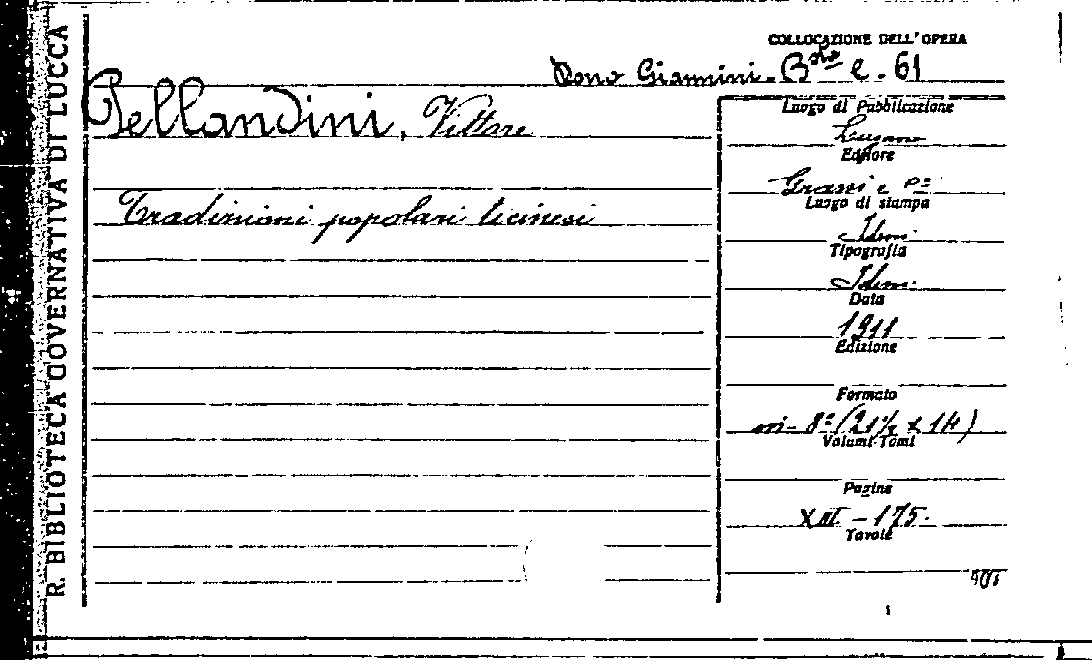 R. BIBLIOTECA GOVERNATIVA DI LUCCA
COLLOCAZIONE DELL'OPERA
Dono Giannini. B e. 61
Pellandini, Vittore
Tradizioni popolari ticinesi
Luogo di Pubblicazione
Lugano
Editore
Grassi e
Luogo di stampa
Idem.
Tipografia
Idem.
Data
1911
Edizione
Formato
in-8º (21½ x 14)
Volumi-Tomi
Pagine
XIII - 175.
Tavole